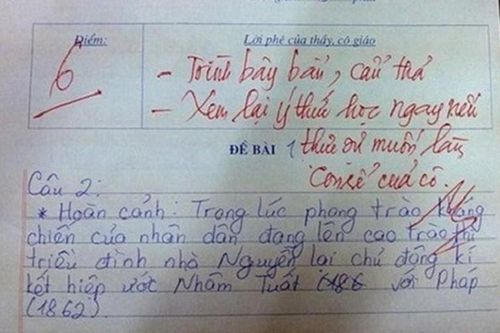 Điểm:
Lời phê của thầy, cô giáo
6
- Trình bày bẩn, cẩu thả
- Xem lại ý thức học ngay nếu
thực sự muốn làm
con rể của cô.
ĐỀ BÀI
Câu 2:
* Hoàn cảnh: Trong lúc phong trào kháng
chiến của nhân dân đang lên cao trào thì
triều đình nhà Nguyễn lại chủ động kí
kết hiệp ước Nhâm Tuất (186 với Pháp
(1862).